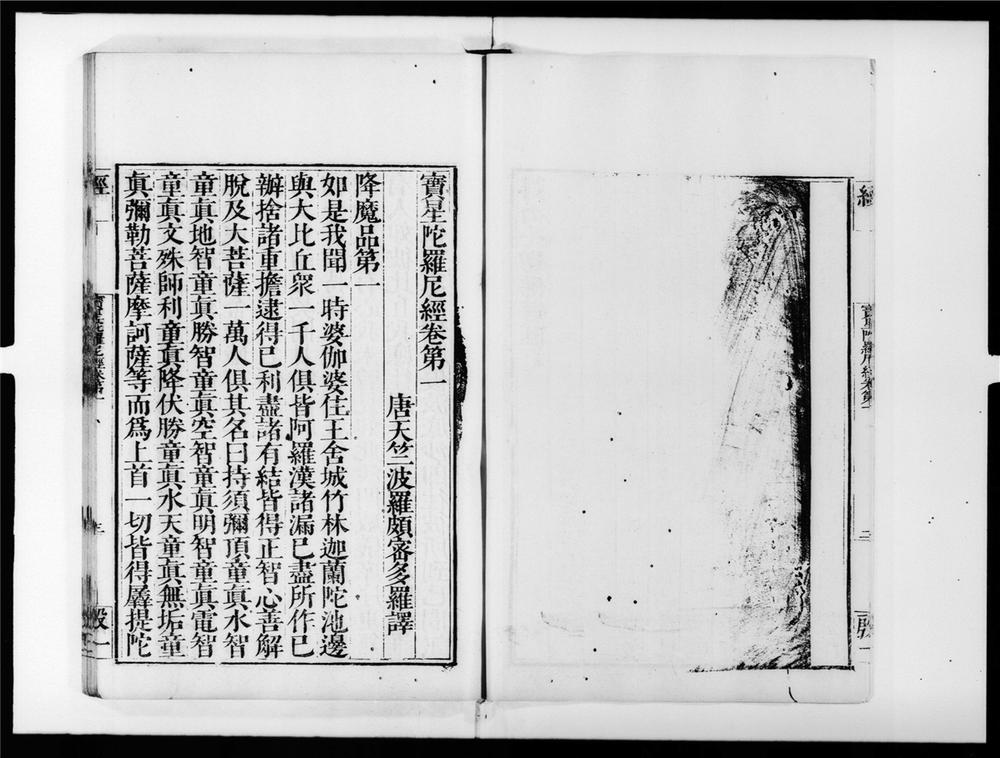 經
寶星陀羅尼經卷第一
唐天竺波羅頗蜜多羅譯
降魔品第一
如是我聞一時婆伽婆住王舍城竹林迦蘭陀池邊
與大比丘眾一千人俱皆阿羅漢諸漏已盡所作已
辦捨諸重擔逮得已利盡諸有結皆得正智心善解
脫及大菩薩一萬人俱其名曰持須彌頂童真水智
童真地智童真勝智童真空智童真明智童真電智
童真文殊師利童真降伏勝童真水天童真無垢童
真彌勒菩薩摩訶薩等而爲上首一切皆得羼提陀
經